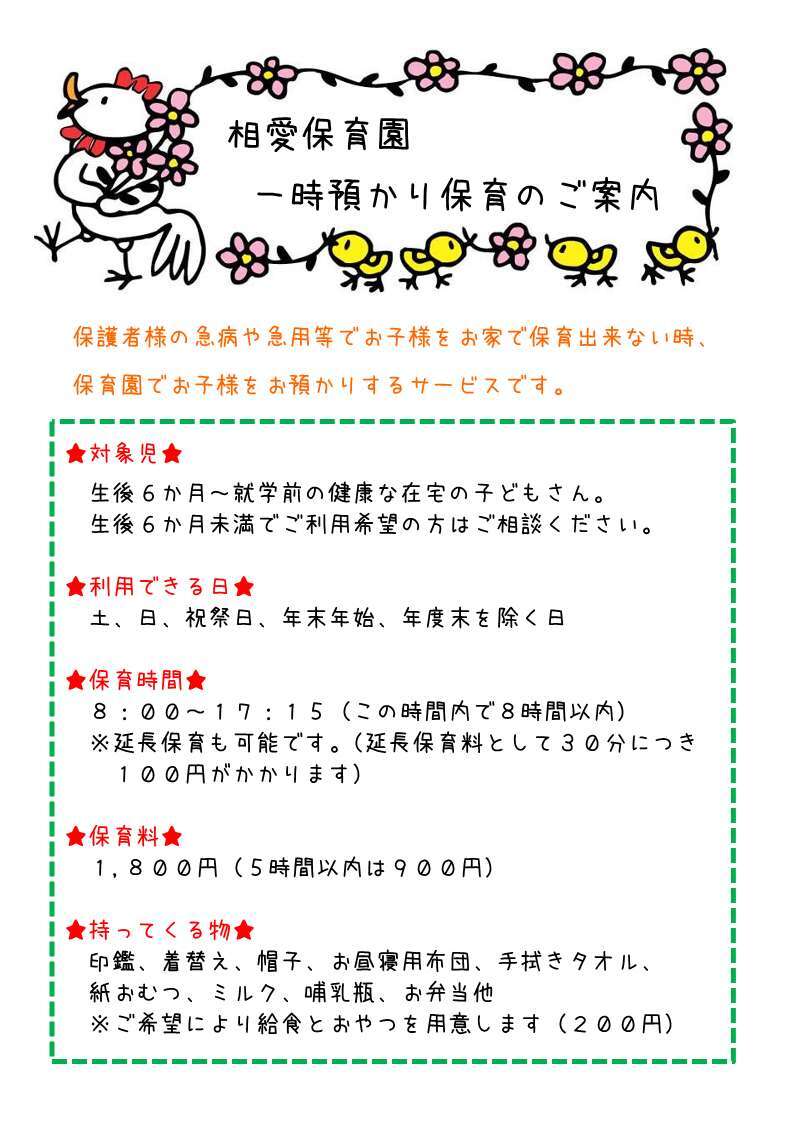 相愛保育園
一時預かり保育のご案内
保護者様の急病や急用等でお子様をお家で保育出来ない時、
保育園でお子様をお預かりするサービスです。
★対象児★
生後６か月～就学前の健康な在宅の子どもさん。
生後６か月未満でご利用希望の方はご相談ください。
★利用できる日★
土、日、祝祭日、年末年始、年度末を除く日
★保育時間★
８：００～１７：１５（この時間内で８時間以内）
※延長保育も可能です。（延長保育料として３０分につき
１００円がかかります）
★保育料★
１，８００円（５時間以内は９００円）
★持ってくる物★
印鑑、着替え、帽子、お昼寝用布団、手拭きタオル、
紙おむつ、ミルク、哺乳瓶、お弁当他
※ご希望により給食とおやつを用意します（２００円）